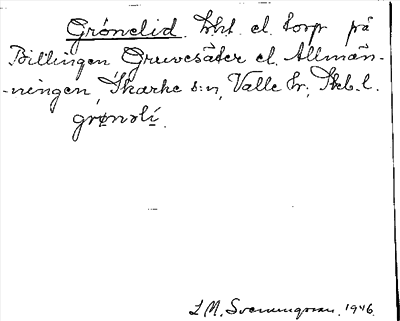 Grönelid. Lht. el. torp på
Billingen Gruvesäter el. Allmän-
-ningen, Skarke s:n, Valle hr, Skb. l.
grønəlí.
L M. Svenungsson. 1946.